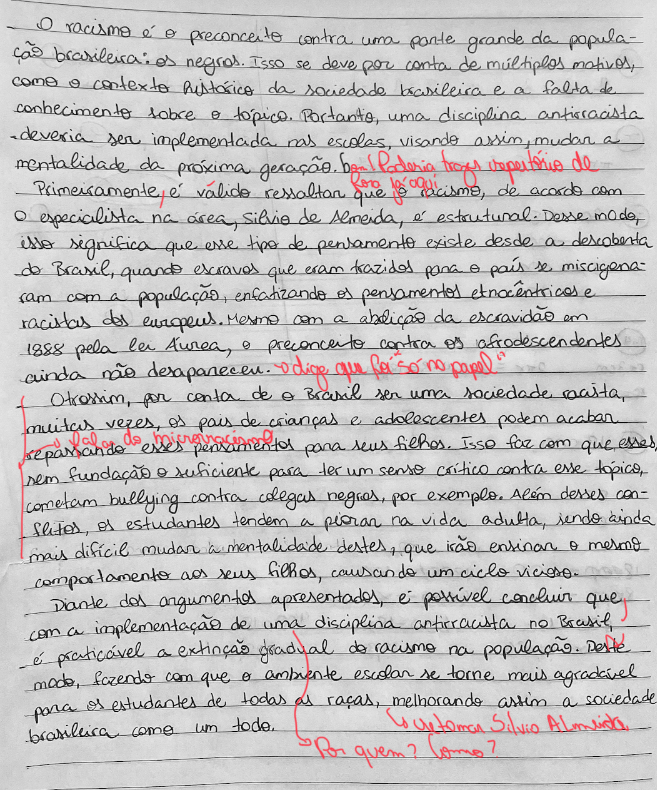 O racismo é o preconceito contra uma parte grande da popula-
ção brasileira: os negros. Isso se deve por conta de múltiplos motivos,
como o contexto histórico da sociedade brasileira e a falta de
conhecimento sobre o tópico. Portanto, uma disciplina antirracista
deveria ser implementada nas escolas, visando assim, mudar a
mentalidade da próxima geração. bom! Poderia trazer repertório de
fora já aqui
Primeiramente, é válido ressaltar que o racismo, de acordo com
o especialista na área, Silvio de Almeida, é estrutural. Desse modo,
isso significa que esse tipo de pensamento existe desde a descoberta
do Brasil, quando escravos que eram trazidos para o país se miscigena-
ram com a população, enfatizando os pensamentos etnocêntricos e
racistas dos europeus. Mesmo com a abolição da escravidão em
1888 pela lei Áurea, o preconceito contra os afrodescendentes
ainda não desapareceu. dige que foi "só no papel"
Otrossim, por conta de o Brasil ser uma sociedade racista,
muitas vezes, os pais de crianças e adolescentes podem acabar
falar do microrracismo
repassando esses pensamentos para seus filhos. Isso faz com que, esses,
sem fundação o suficiente para ter um senso crítico contra esse tópico,
cometam bullying contra colegas negros, por exemplo. Além desses con-
flitos, os estudantes tendem a piorar na vida adulta, sendo ainda
mais difícil mudar a mentalidade destes, que irão ensinar o mesmo
comportamento aos seus filhos, causando um ciclo vicioso.
Diante dos argumentos apresentados, é possível concluir que,
com a implementação de uma disciplina antirracista no Brasil,
é praticável a extinção gradual do racismo na população. Deste
modo, fazendo com que o ambiente escolar se torne mais agradável
para os estudantes de todas as raças, melhorando assim a sociedade
retomar Silvio Almeida
brasileira como um todo.
Por quem? Como?